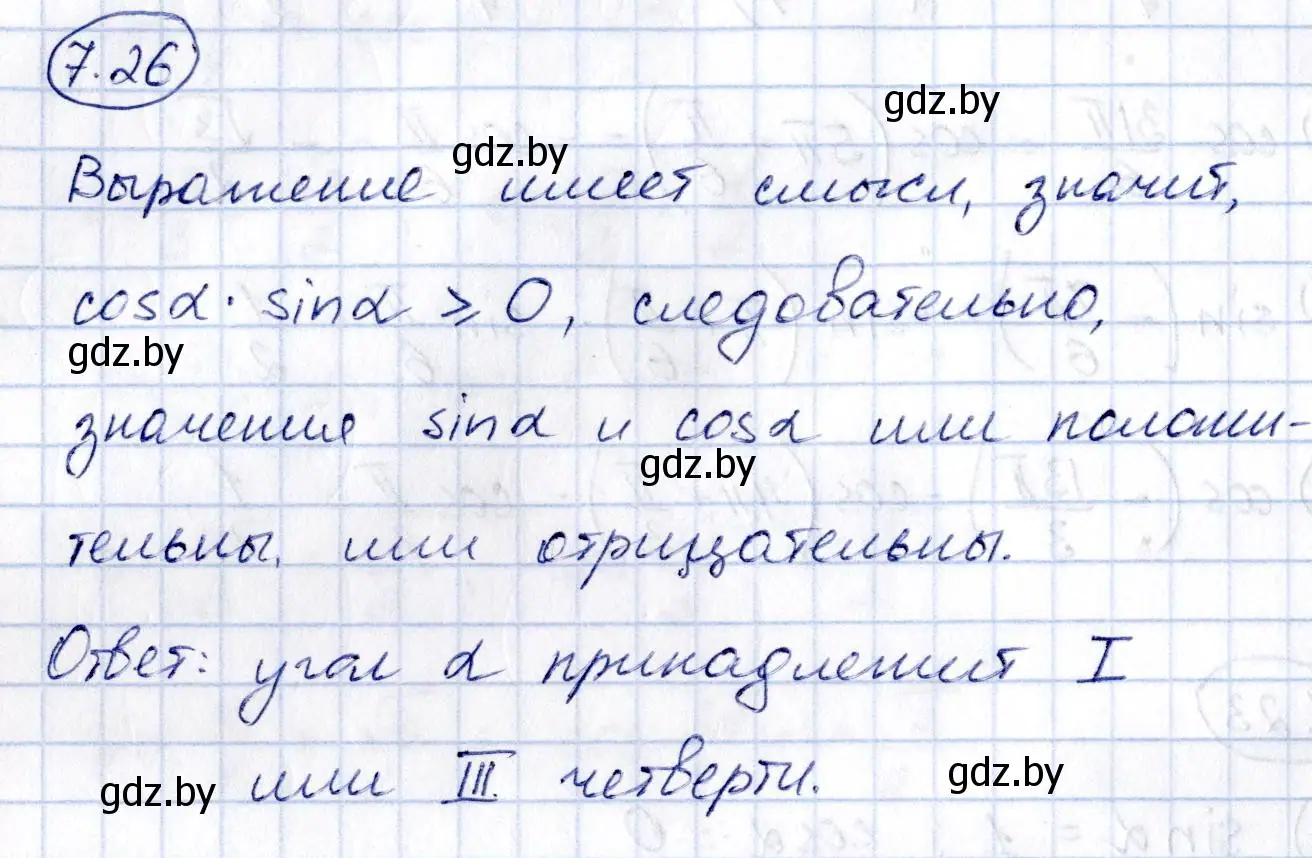 7.26
gdz.by
gdz.by
Выражение имеет смысл, значит,
cosα · sinα ⩾ 0, следовательно,
gdz.by
значения sinα и cosα или положи-
gdz.by
тельны, или отрицательны.
Ответ: угол α принадлежит I
или III четверти.
gdz.by
gdz.by